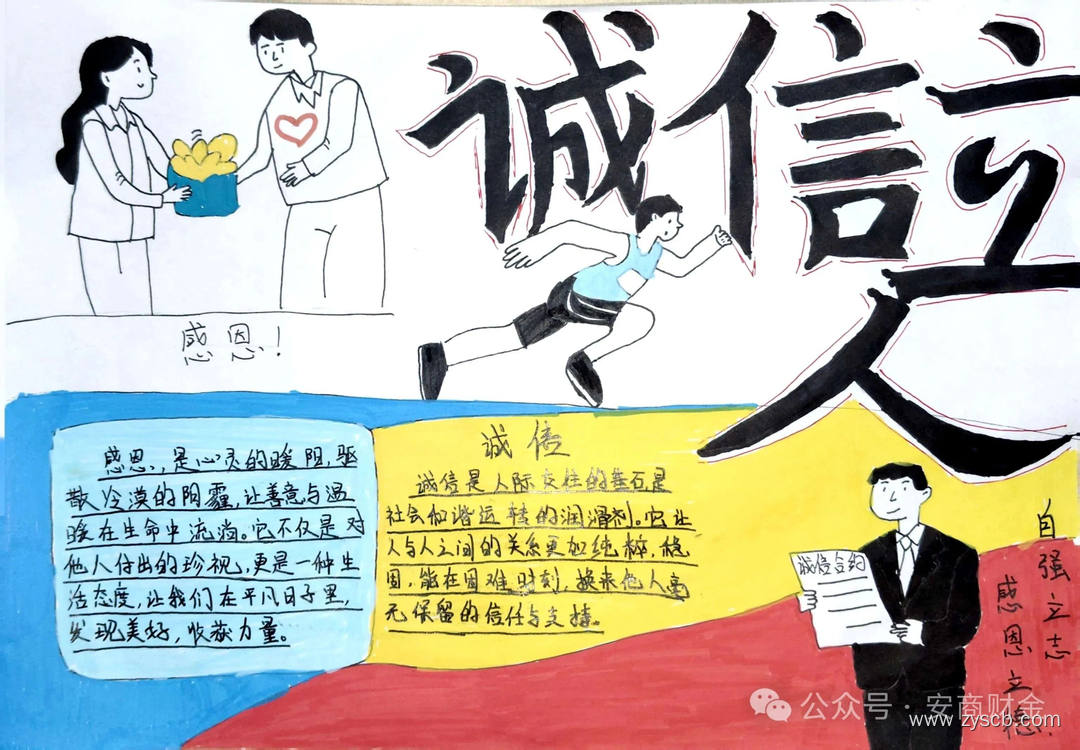 诚信立
人
感恩！
感恩，是心灵的暖阳，驱
散冷漠的阴霾，让善意与温
暖在生命中流淌。它不仅是对
他人付出的珍视，更是一种生
活态度，让我们在平凡日子里，
发现美好，收获力量。
诚信
诚信是人际交往的基石是
社会和谐运转的润滑剂。它让
人与人之间的关系更加纯粹，稳
固，能在困难时刻，换来他人毫
无保留的信任与支持。
诚信合约
自强立志
感恩立德！
公众号·安商财金
www.zyscb.com